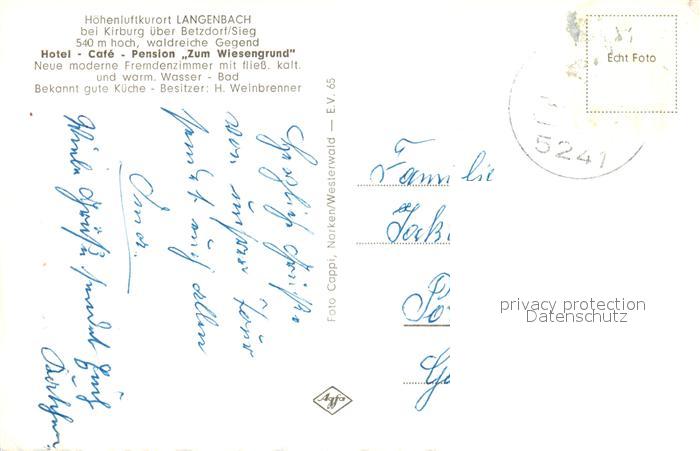 Höhenluftkurort LANGENBACH
bei Kirburg über Betzdorf/Sieg
540 m hoch, waldreiche Gegend
Hotel - Café - Pension „Zum Wiesengrund"
Neue moderne Fremdenzimmer mit fließ. kalt.
und warm. Wasser - Bad
Bekannt gute Küche - Besitzer: H. Weinbrenner
Herzliche Grüße
von unserer Tour
sendet euch allen
Oma.
Viele Grüße sendet Euch
Foto Cappi, Norken/Westerwald — E.V. 65
Agfa
Echt Foto
5241
Familie
Jak
privacy protection
Datenschutz